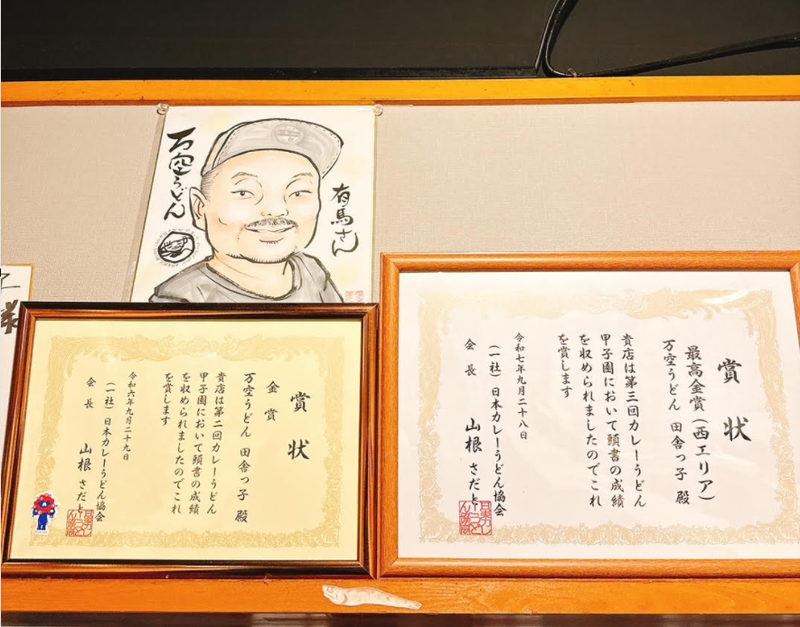 万空うどん
有馬さん
賞状
金賞
万空うどん 田舎っ子 殿
貴店は第二回カレーうどん
甲子園において頭書の成績
を収められましたのでこれ
を賞します
令和六年九月二十九日
(一社)日本カレーうどん協会
会長 山根さだと
賞状
最高金賞(西エリア)
万空うどん 田舎っ子 殿
貴店は第三回カレーうどん
甲子園において頭書の成績
を収められましたのでこれ
を賞します
令和七年九月二十八日
(一社)日本カレーうどん協会
会長 山根さだと